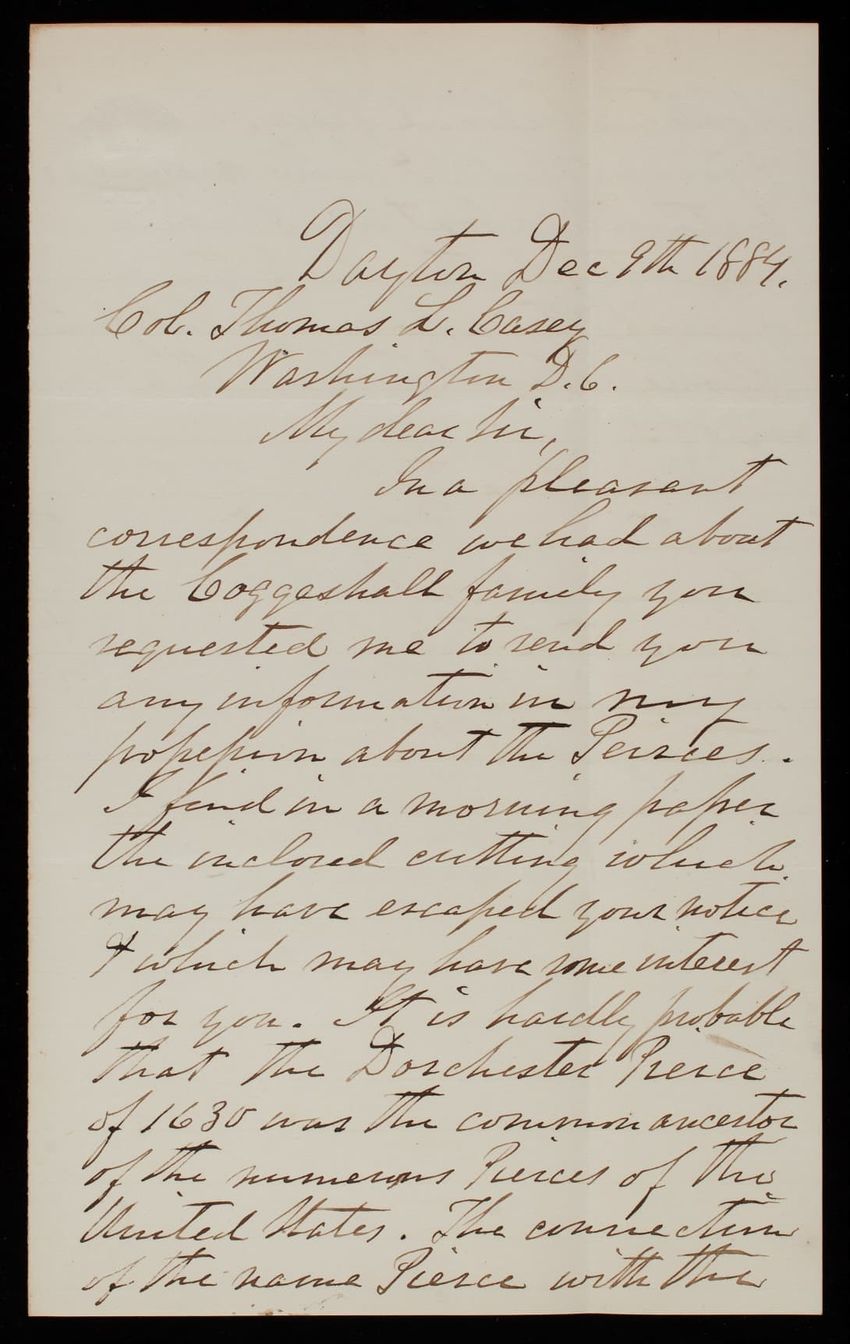 Dayton Dec 9th 1884.
Col. Thomas L. Casey
Washington D.C.
My dear Sir,
In a pleasant
correspondence we had about
the Coggeshall family you
requested me to send you
any information in my
possession about the Peirces.
I find in a morning paper
the inclosed cutting which
may have escaped your notice
& which may have some interest
for you. It is hardly probable
that the Dorchester Pierce
of 1630 was the common ancestor
of the numerous Pierces of the
United States. The connection
of the name Pierce with the